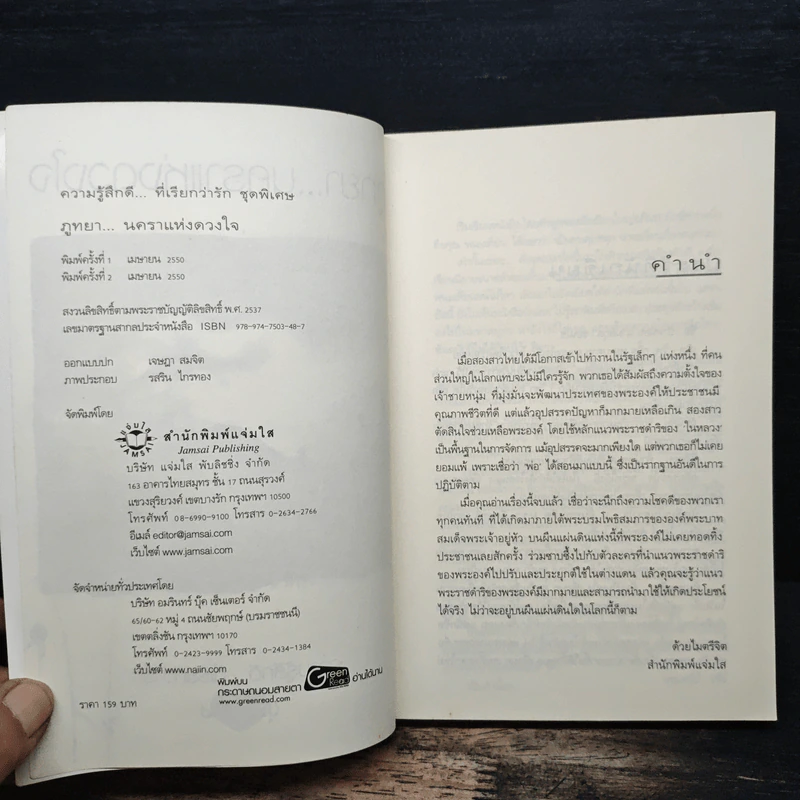 ความรู้สึกดี... ที่เรียกว่ารัก ชุดพิเศษ
ภูทยา... นคราแห่งดวงใจ
พิมพ์ครั้งที่ 1 เมษายน 2550
พิมพ์ครั้งที่ 2 เมษายน 2550
สงวนลิขสิทธิ์ตามพระราชบัญญัติลิขสิทธิ์ พ.ศ. 2537
เลขมาตรฐานสากลประจำหนังสือ ISBN 978-974-7503-48-7
ออกแบบปก เจษฎา สมจิต
ภาพประกอบ รสริน ไกรทอง
จัดพิมพ์โดย
แจ่มใส
JAMSAI
สำนักพิมพ์แจ่มใส
Jamsai Publishing
บริษัท แจ่มใส พับลิชชิ่ง จำกัด
163 อาคารไทยสมุทร ชั้น 17 ถนนสุรวงศ์
แขวงสุริยวงศ์ เขตบางรัก กรุงเทพฯ 10500
โทรศัพท์ 08-6990-9100 โทรสาร 0-2634-2766
อีเมล์ editor@jamsai.com
เว็บไซต์ www.jamsai.com
จัดจำหน่ายทั่วประเทศโดย
บริษัท อมรินทร์ บุ๊ค เซ็นเตอร์ จำกัด
65/60-62 หมู่ 4 ถนนชัยพฤกษ์ (บรมราชชนนี)
เขตตลิ่งชัน กรุงเทพฯ 10170
โทรศัพท์ 0-2423-9999 โทรสาร 0-2434-1384
เว็บไซต์ www.naiin.com
พิมพ์บน
กระดาษถนอมสายตา Green Read อ่านได้นาน
www.greenread.com
ราคา 159 บาท
คำนำ
เมื่อสองสาวไทยได้มีโอกาสเข้าไปทำงานในรัฐเล็กๆ แห่งหนึ่ง ที่คน
ส่วนใหญ่ในโลกแทบจะไม่มีใครรู้จัก พวกเธอได้สัมผัสถึงความตั้งใจของ
เจ้าชายหนุ่ม ที่มุ่งมั่นจะพัฒนาประเทศของพระองค์ให้ประชาชนมี
คุณภาพชีวิตที่ดี แต่แล้วอุปสรรคปัญหาก็มากมายเหลือเกิน สองสาว
ตัดสินใจช่วยเหลือพระองค์ โดยใช้หลักแนวพระราชดำริของ 'ในหลวง'
เป็นพื้นฐานในการจัดการ แม้อุปสรรคจะมากเพียงใด แต่พวกเธอก็ไม่เคย
ยอมแพ้ เพราะเชื่อว่า 'พ่อ' ได้สอนมาแบบนี้ ซึ่งเป็นรากฐานอันดีในการ
ปฏิบัติตาม
เมื่อคุณอ่านเรื่องนี้จบแล้ว เชื่อว่าจะนึกถึงความโชคดีของพวกเรา
ทุกคนทันที ที่ได้เกิดมาภายใต้พระบรมโพธิสมภารขององค์พระบาท
สมเด็จพระเจ้าอยู่หัว บนผืนแผ่นดินแห่งนี้ที่พระองค์ไม่เคยทอดทิ้ง
ประชาชนเลยสักครั้ง ร่วมซาบซึ้งไปกับตัวละครที่นำแนวพระราชดำริ
ของพระองค์ไปปรับและประยุกต์ใช้ในต่างแดน แล้วคุณจะรู้ว่าแนว
พระราชดำริของพระองค์มีมากมายและสามารถนำมาใช้ให้เกิดประโยชน์
ได้จริง ไม่ว่าจะอยู่บนผืนแผ่นดินใดในโลกนี้ก็ตาม
ด้วยไมตรีจิต
สำนักพิมพ์แจ่มใส